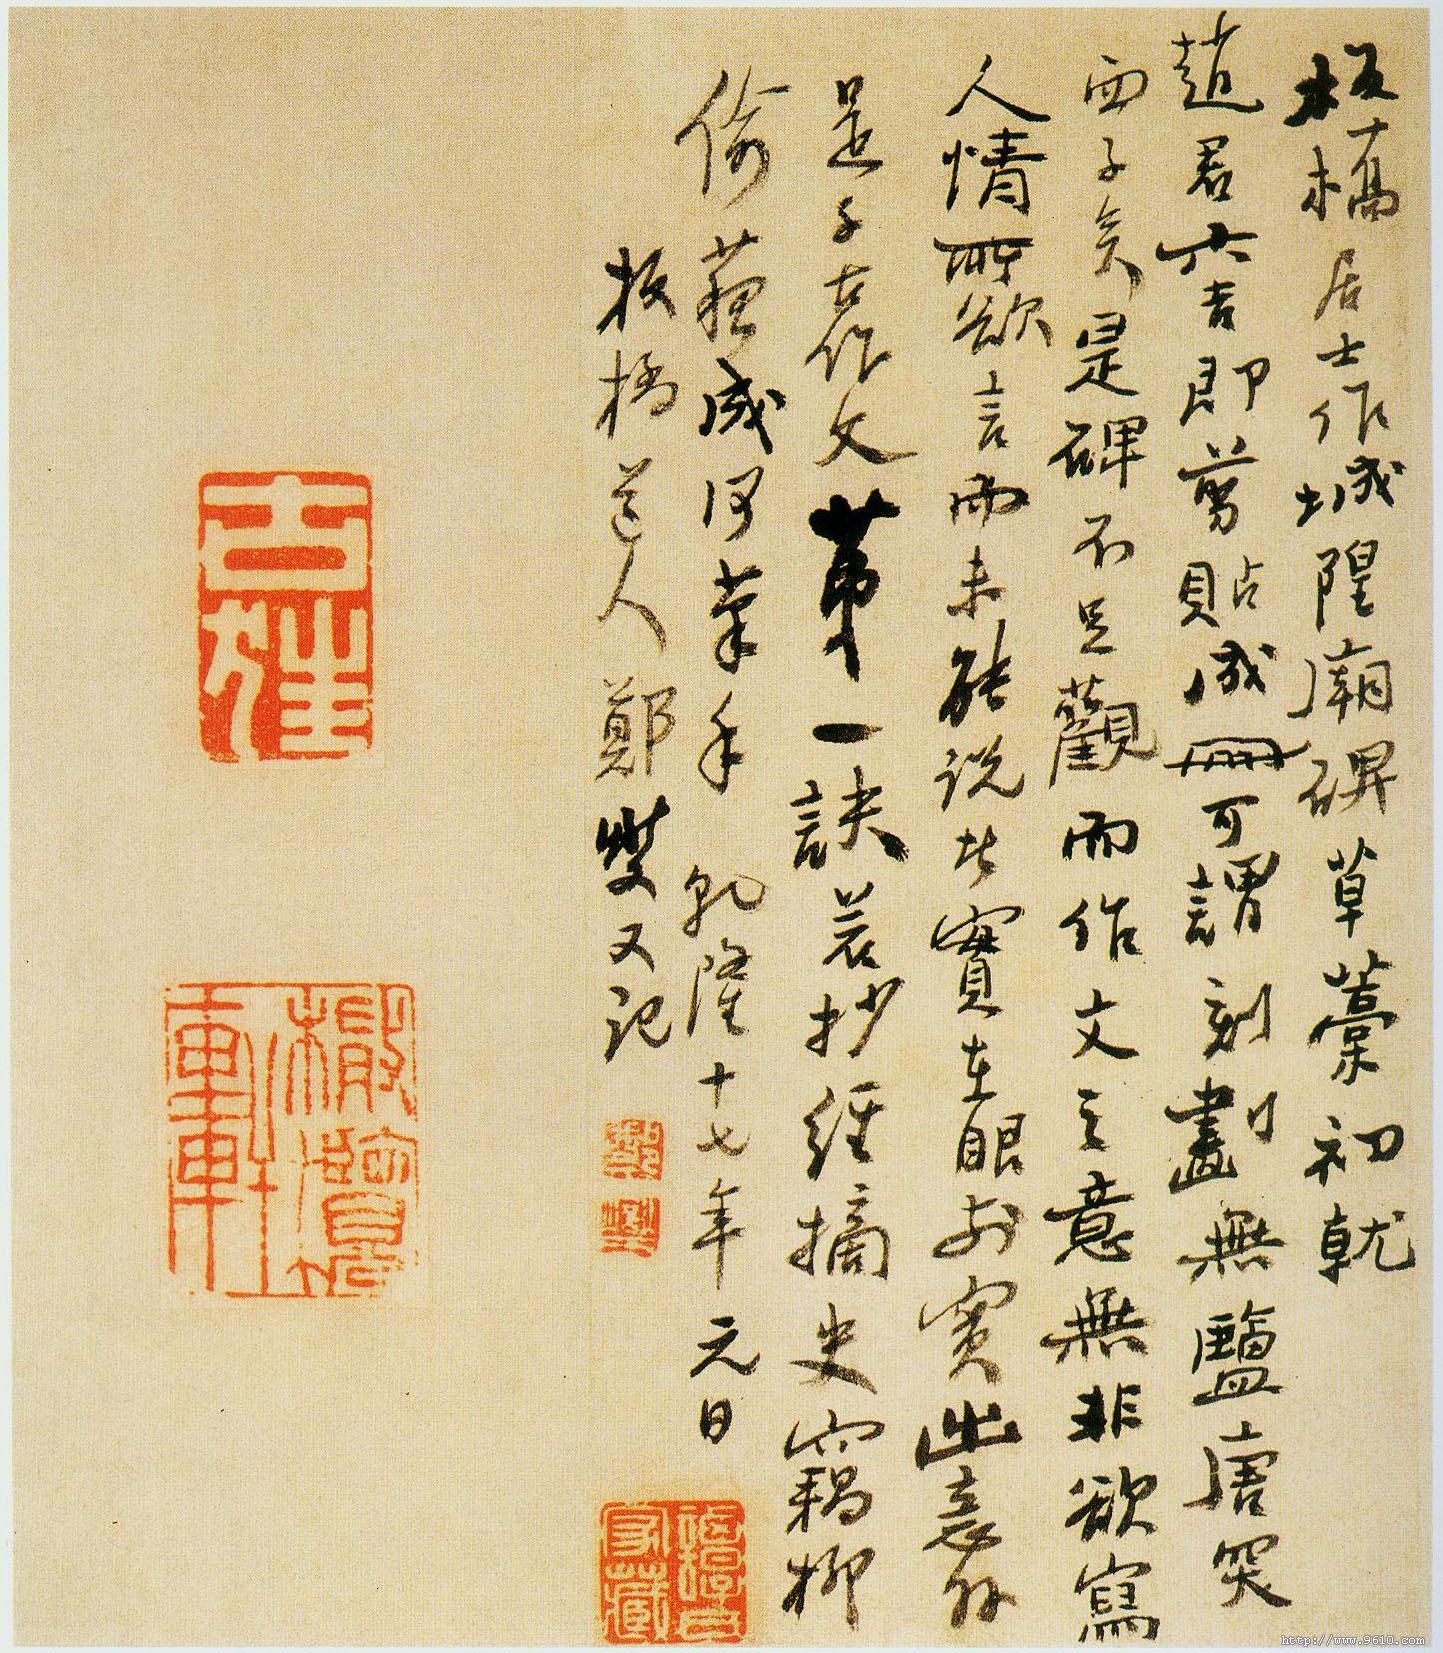 板橋居士作城隍廟碑草藁初就
趙君六吉即剪貼成冊可謂刻劃無鹽唐突
西子矣是碑不足觀而作文之意無非欲寫
人情所欲言而未能說此實在眼前實出意外
是千古作文第一訣若抄經摘史竊柳
偷蘇成何筆手 乾隆十七年元日
板橋道人鄭燮又記
http://www.9610.com